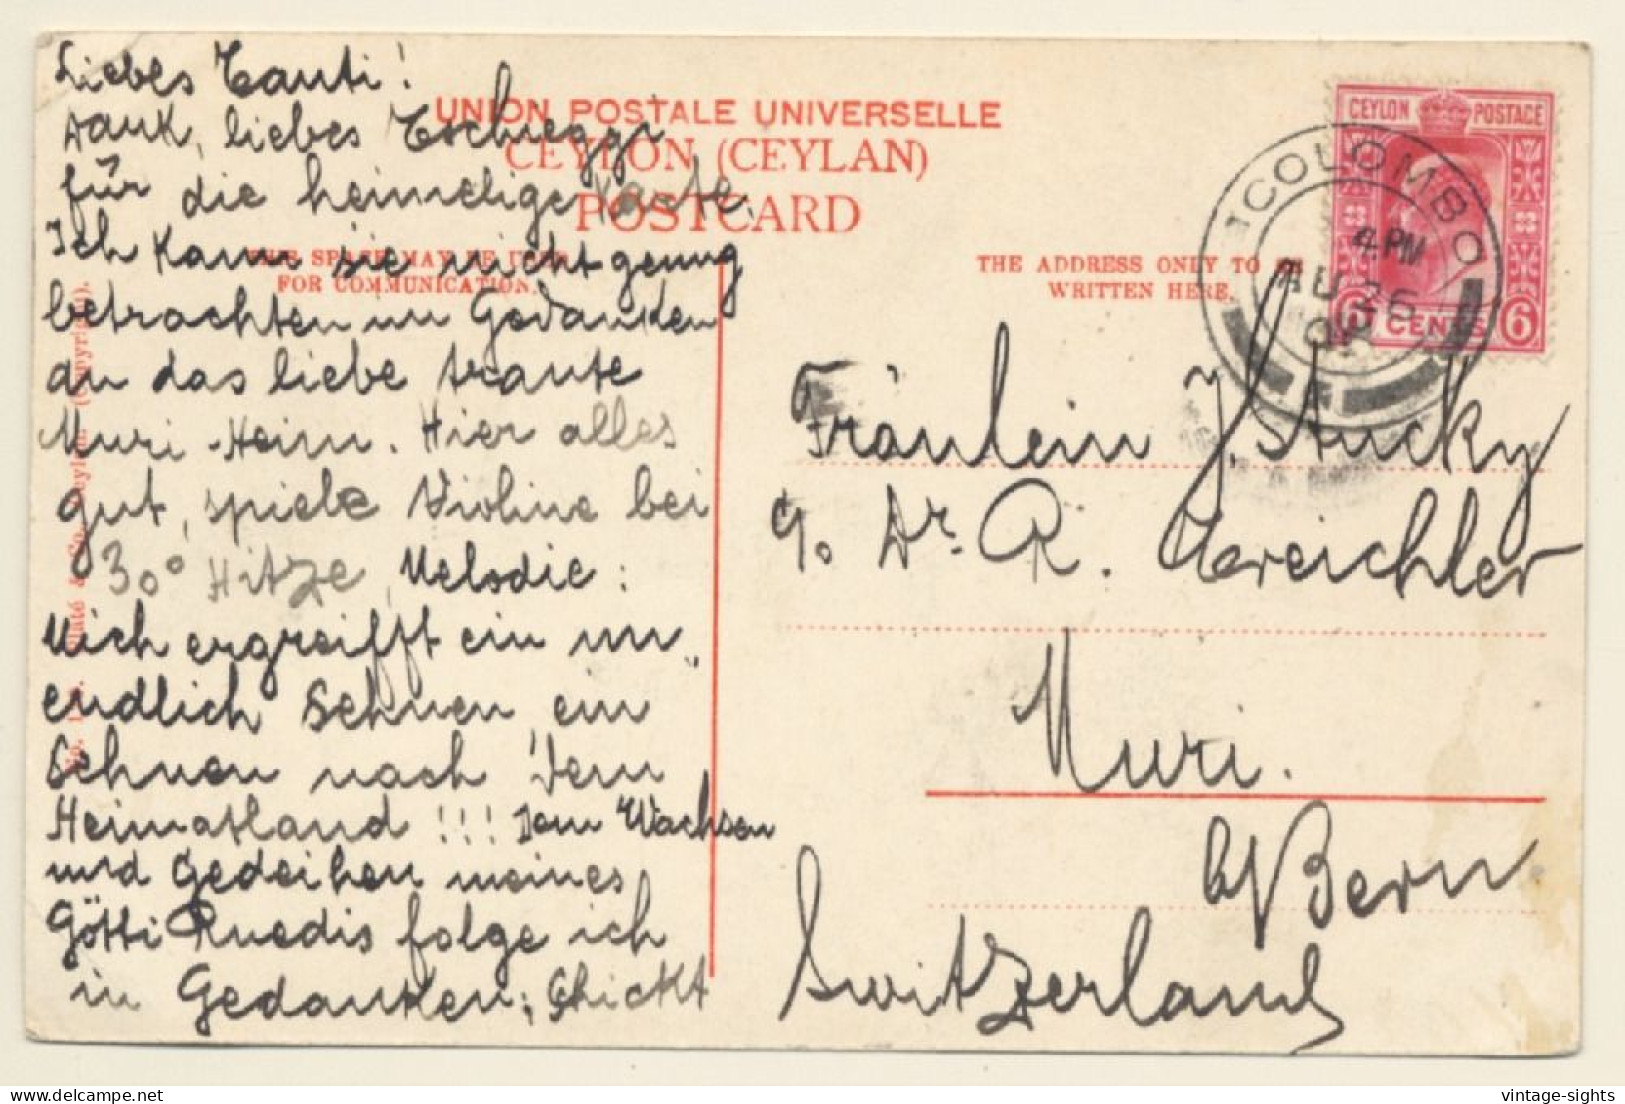 Liebes Tanti!
Dank, liebes Tschieggi
für die heimelige Karte.
Ich kann sie nicht genug
betrachten um Gedanken
an das liebe traute
Muri-Heim. Hier alles
gut, spiele Violine bei
30° Hitze, Melodie:
Mich ergreifft ein un„
endlich Sehnen ein
Sehnen nach dem
Heimatland!!! Dem Wachsen
und Gedeihen meines
Götti Ruedis folge ich
in Gedanken; Schickt
UNION POSTALE UNIVERSELLE
CEYLON (CEYLAN)
POSTCARD
THIS SPACE MAY BE USED
FOR COMMUNICATION.
THE ADDRESS ONLY TO BE
WRITTEN HERE.
CEYLON POSTAGE
6 CENTS 6
COLOMBO
4.PM
AU 26
Fräulein J. Stucky
c/o. Dr. R.
Muri.
b/Bern
Switzerland
(Copyright).
vintage-sights